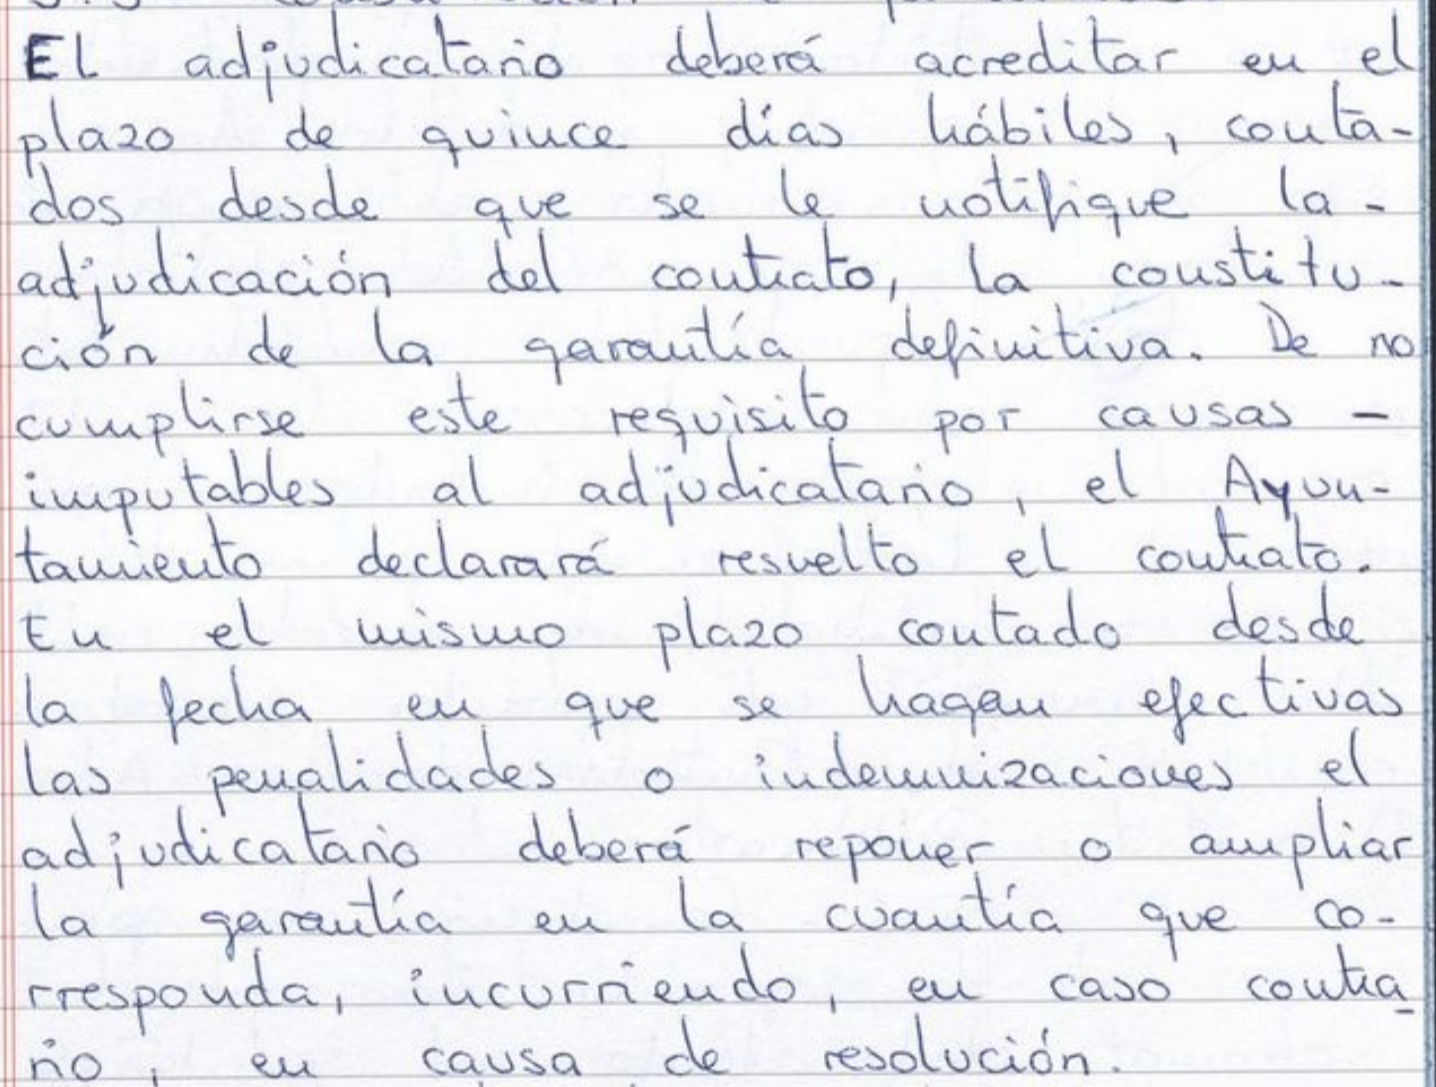 El adjudicatario deberá acreditar en el
plazo de quince días hábiles, conta-
dos desde que se le notifique la -
adjudicación del contrato, la constitu-
ción de la garantía definitiva. De no
cumplirse este requisito por causas -
imputables al adjudicatario, el Ayun-
tamiento declarará resuelto el contrato.
En el mismo plazo contado desde
la fecha en que se hagan efectivas
las penalidades o indemnizaciones el
adjudicatario deberá reponer o ampliar
la garantía en la cuantía que co-
rresponda, incurriendo, en caso contra-
rio, en causa de resolución.